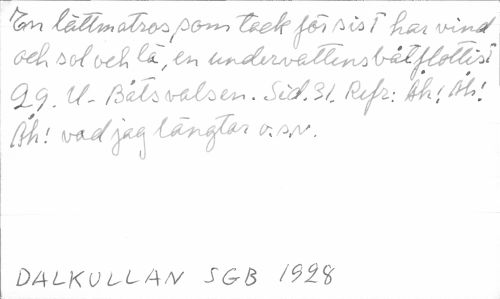 En lättmatros, som tack för sist har vind
och sol och lä, en undervattensbåtflottist
29. U-Båtsvalsen. Sid. 31. Refr: Åh! Åh!
Åh! vad jag längtar o.s.v.
DALKULLAN SGB 1928